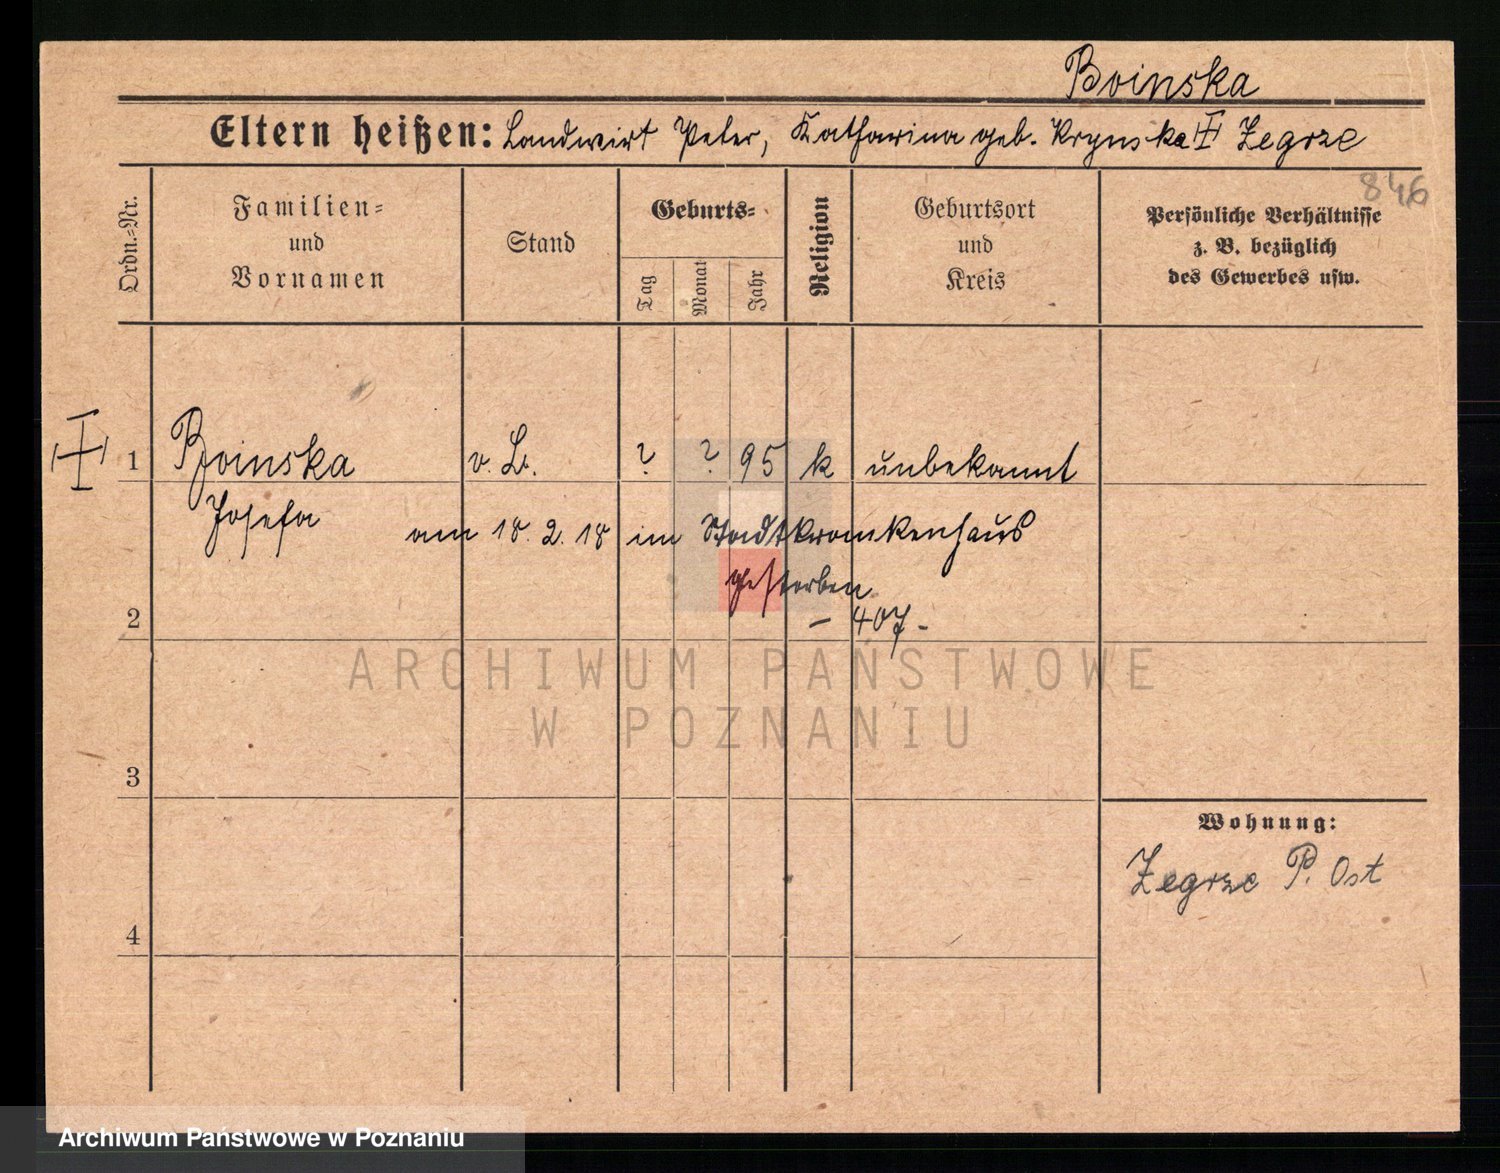 Boinska
Eltern heißen: Landwirt Peter, Katharina geb. Krynska Zegrze
846
Ordn.-Nr.
Familien-
und
Vornamen
Stand
Geburts-
Tag
Monat
Jahr
Religion
Geburtsort
und
Kreis
Persönliche Verhältnisse
z. B. bezüglich
des Gewerbes usw.
1 Boinska v. B. ? ? 95 k unbekannt
Josefa am 18. 2. 18 im Stadtkrankenhaus
gestorben
– 407 –
2
ARCHIWUM PAŃSTWOWE
W POZNANIU
3
Wohnung:
Zegrze P. Ost
4
Archiwum Państwowe w Poznaniu